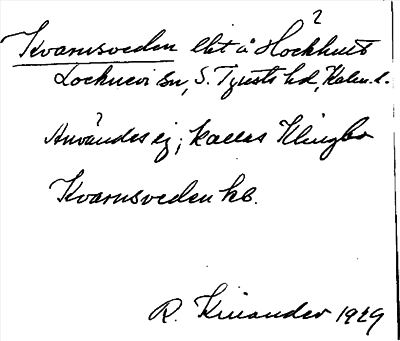 ?
Kvarnsveden lht å Hóckhult
Locknevi sn, S. Tjusts hd, Kalm. l.
Användes ej; kallas Klingbo
Kvarnsveden kb.
R. Kinander 1929